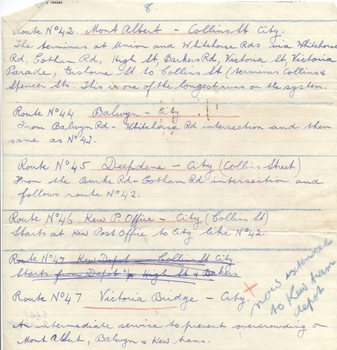 8
Route Nº42. Mont Albert - Collins St City.
The terminus at Union and Whitehorse Rds via Whitehorse
Rd, Cotham Rd, High St Barkers Rd, Victoria St, Victoria
Parade, Gisborne St to Collins St (terminus Collins &
Spencer St. This is one of the longest runs on the system.
Route Nº44 Balwyn - City
From Balwyn Rd - Whitehorse Rd intersection and then
same as Nº42.
Route Nº45 Deepdene - City (Collins Street)
From the Burke Rd - Cotham Rd intersection and
follows route Nº42.
Route Nº46 Kew P. Office - City (Collins St)
Starts at Kew Post Office to City like Nº42.
Route Nº47 Kew Depot - Collins St City
Starts from Depot in High St &
Route Nº47 Victoria Bridge - City +
now extended
to Kew tram
depot
An intermediate service to prevent overcrowding on
Mont Albert, Balwyn & Kew trams.